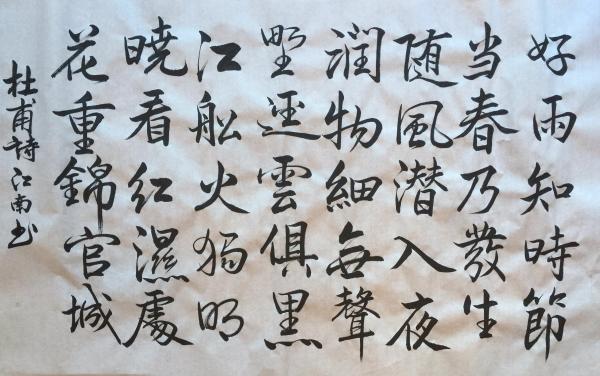 好雨知時節
当春乃發生
随風潜入夜
潤物細無聲
野逕雲俱黑
江船火獨明
曉看紅濕處
花重錦官城
杜甫詩江南书